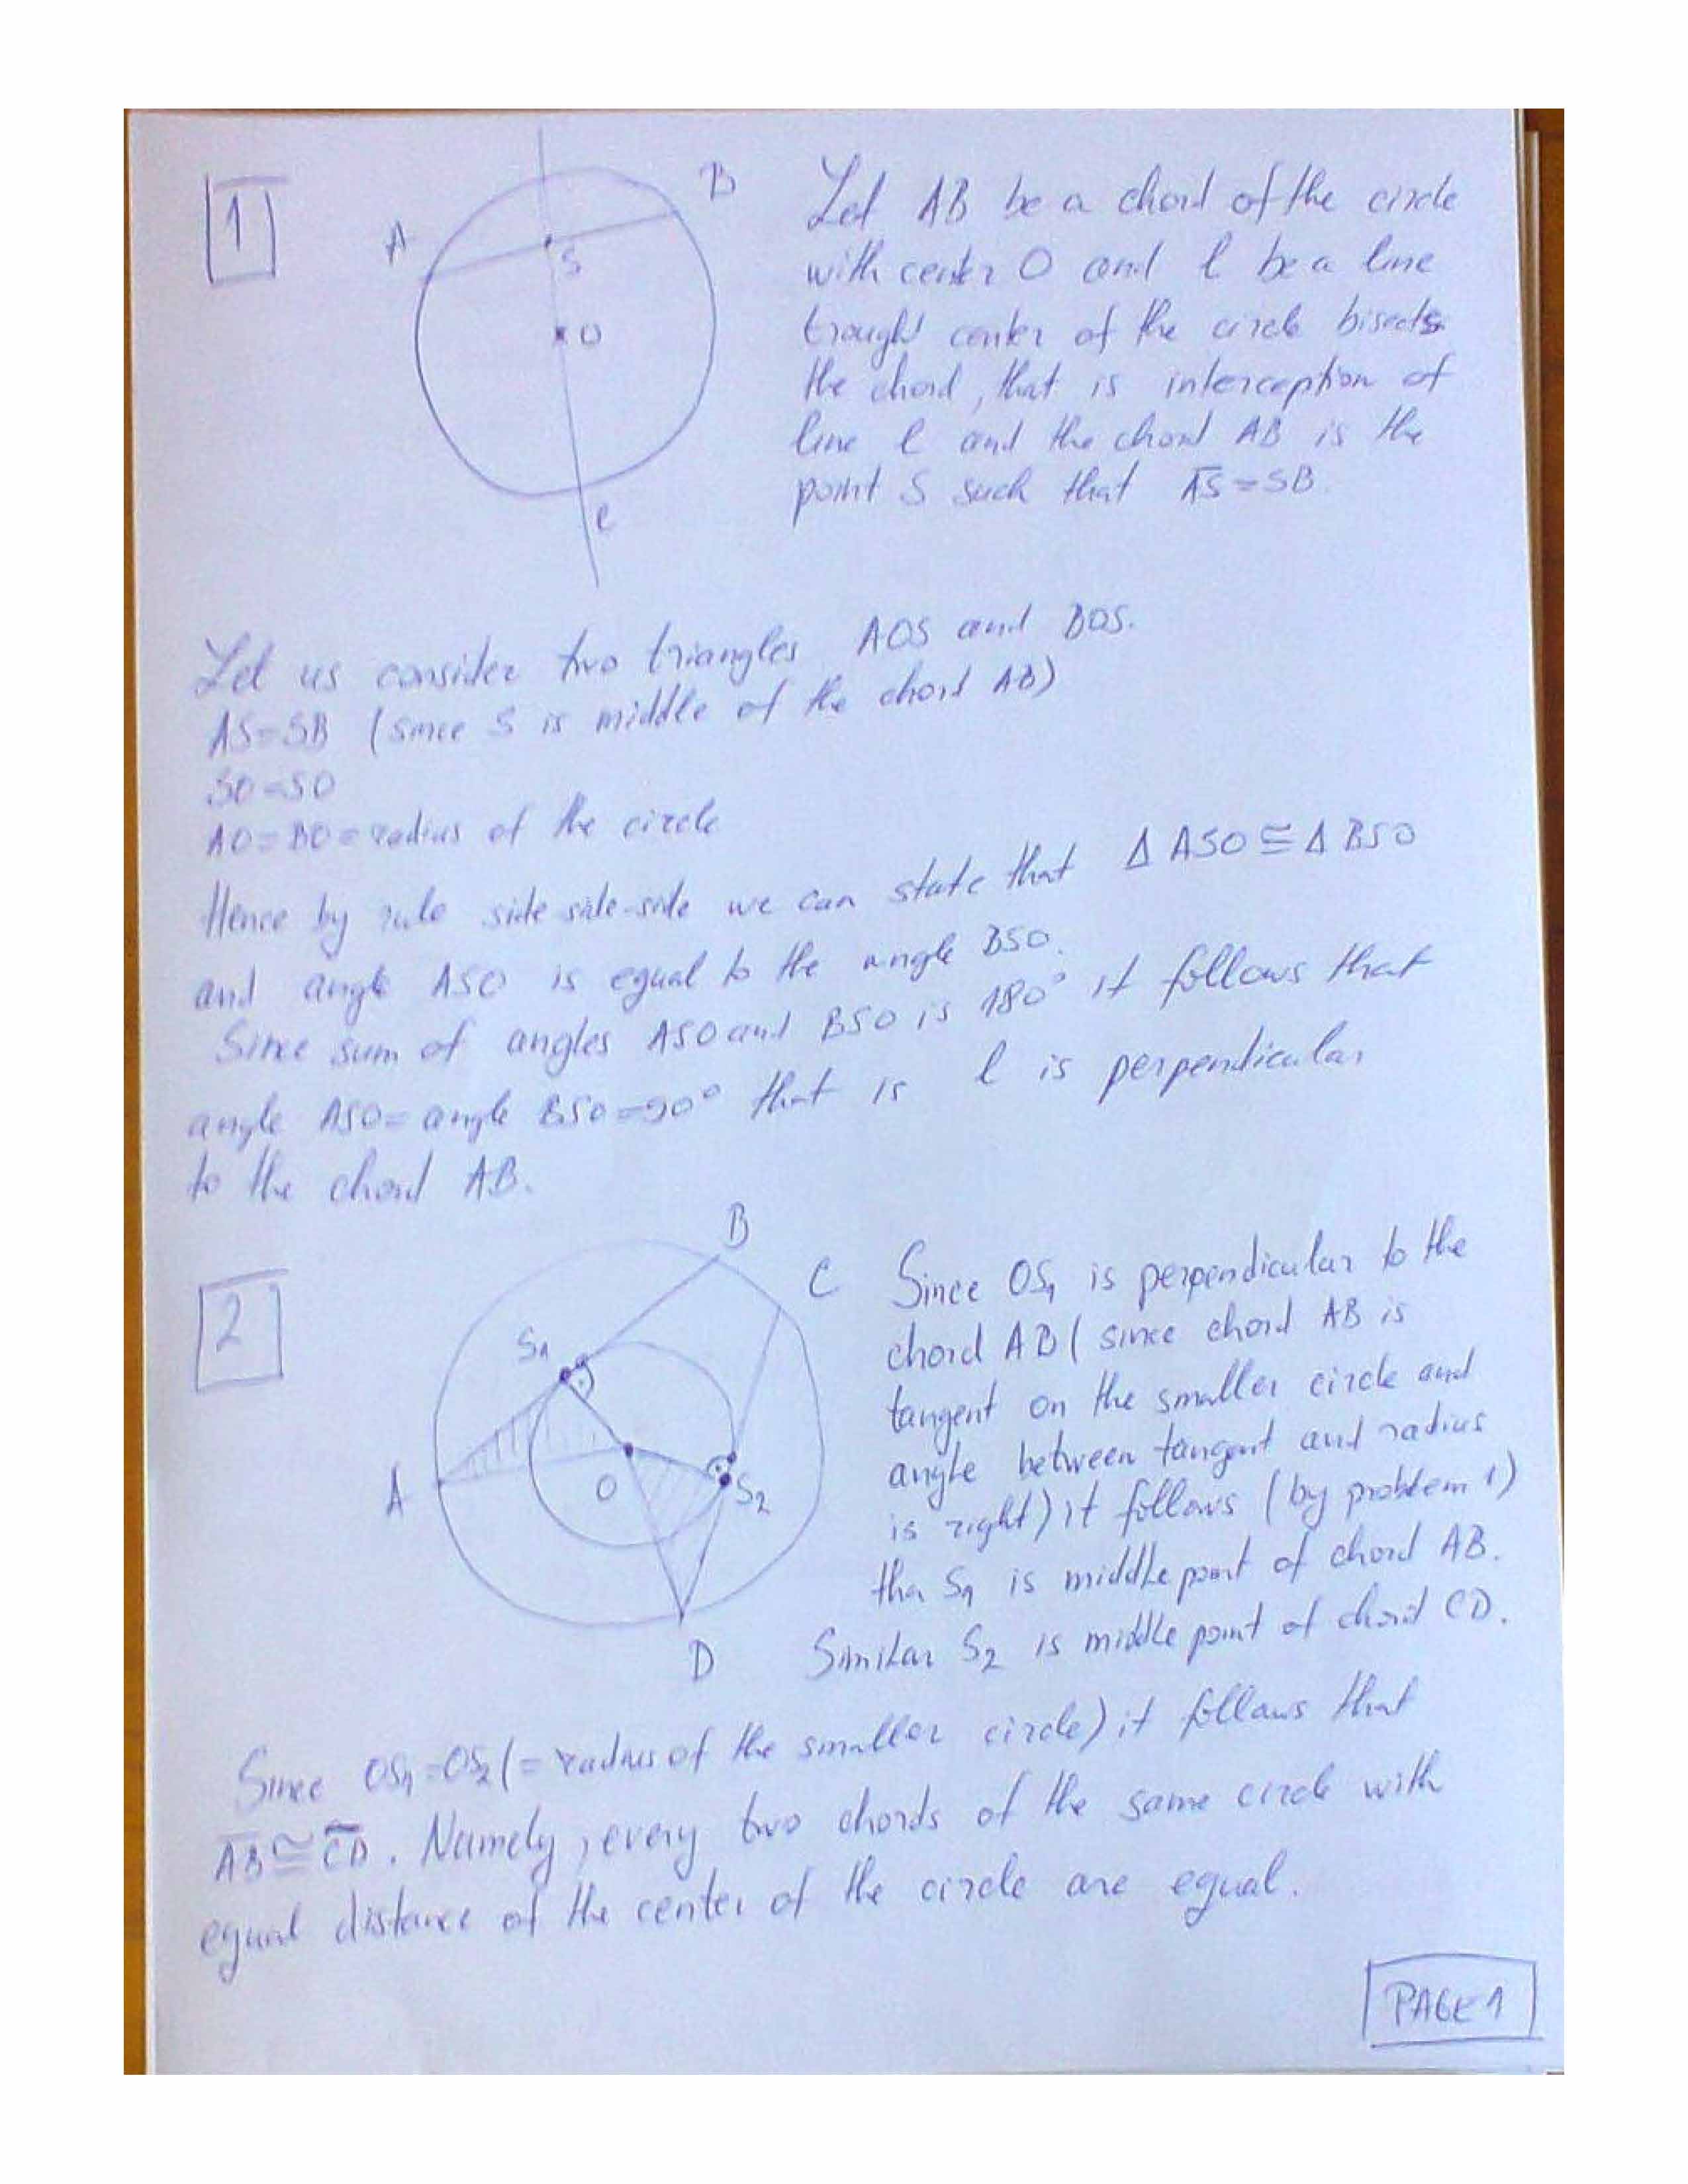 1
A
B
S
O
l
Let AB be a chord of the circle
with center O and l be a line
trought center of the circle bisects
the chord, that is interception of
line l and the chord AB is the
point S such that AS=SB.
Let us consider two triangles AOS and BOS.
AS=SB (since S is middle of the chord AB)
SO=SO
AO=BO=radius of the circle
Hence by rule side-side-side we can state that Δ ASO ≅ Δ BSO
and angle ASO is equal to the angle BSO.
Since sum of angles ASO and BSO is 180° it follows that
angle ASO = angle BSO = 90° that is l is perpendicular
to the chord AB.
2
B
C
S1
A
O
S2
D
Since OS1 is perpendicular to the
chord AB (since chord AB is
tangent on the smaller circle and
angle between tangent and radius
is right) it follows (by problem 1)
tha S1 is middle point of chord AB.
Similar S2 is middle point of chord CD.
Since OS1=OS2 (= radius of the smaller circle) it follows that
AB ≅ CD. Namely, every two chords of the same circle with
equal distance of the center of the circle are equal.
PAGE 1